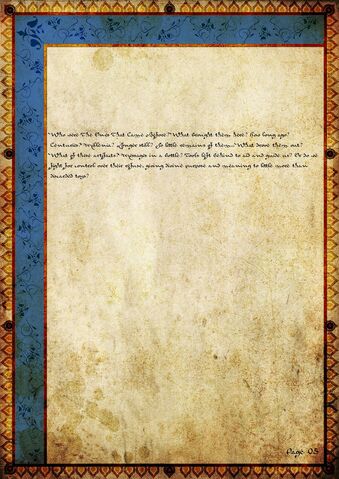 "Who were The Ones That Came Before? What brought them here? How long ago?
Centuries? Millenia? Longer still? So little remains of them... What drove them out?
What of these artifacts? Messages in a bottle? Tools left behind to aid and guide us? Or do we
fight for control over their refuse, giving divine purpose and meaning to little more than
discarded toys?
Page 05